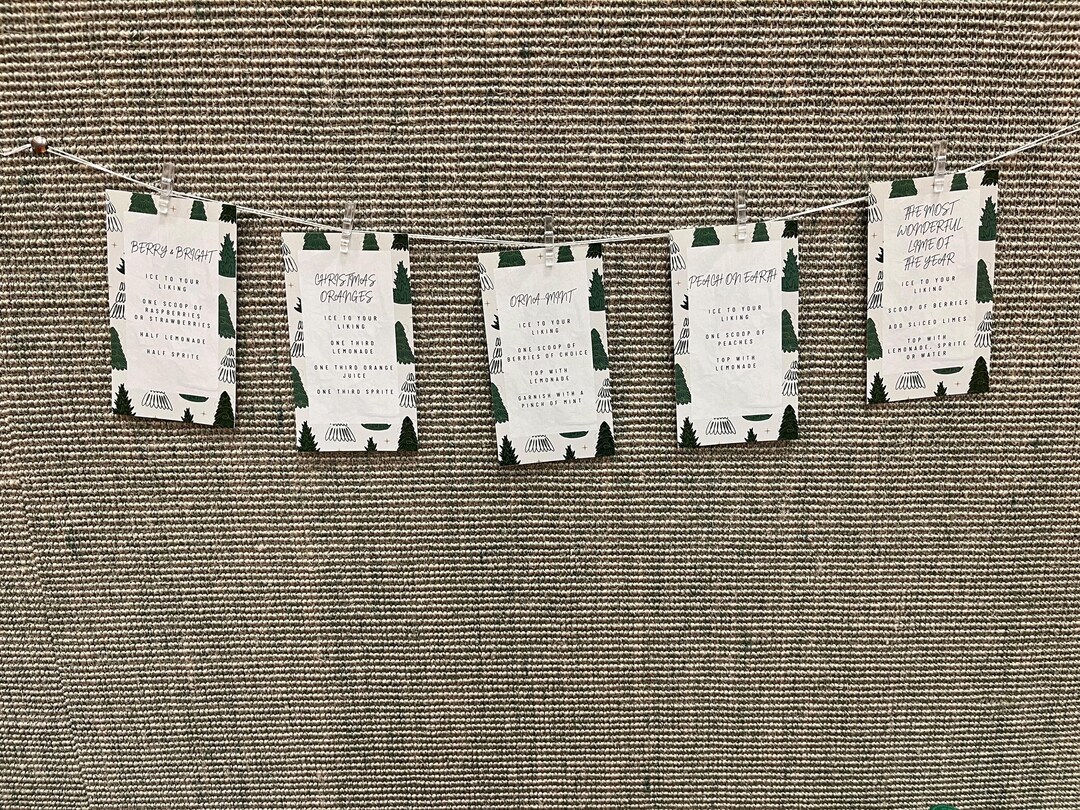 BERRY & BRIGHT
ICE TO YOUR
LIKING
ONE SCOOP OF
RASPBERRIES
OR STRAWBERRIES
HALF LEMONADE
HALF SPRITE
CHRISTMAS
ORANGES
ICE TO YOUR
LIKING
ONE THIRD
LEMONADE
ONE THIRD ORANGE
JUICE
ONE THIRD SPRITE
ORNA-MINT
ICE TO YOUR
LIKING
ONE SCOOP OF
BERRIES OF CHOICE
TOP WITH
LEMONADE
GARNISH WITH A
PINCH OF MINT
PEACH ON EARTH
ICE TO YOUR
LIKING
ONE SCOOP OF
PEACHES
TOP WITH
LEMONADE
THE MOST
WONDERFUL
LIME OF
THE YEAR
ICE TO YOUR
LIKING
SCOOP OF BERRIES
ADD SLICED LIMES
TOP WITH
LEMONADE, SPRITE
OR WATER